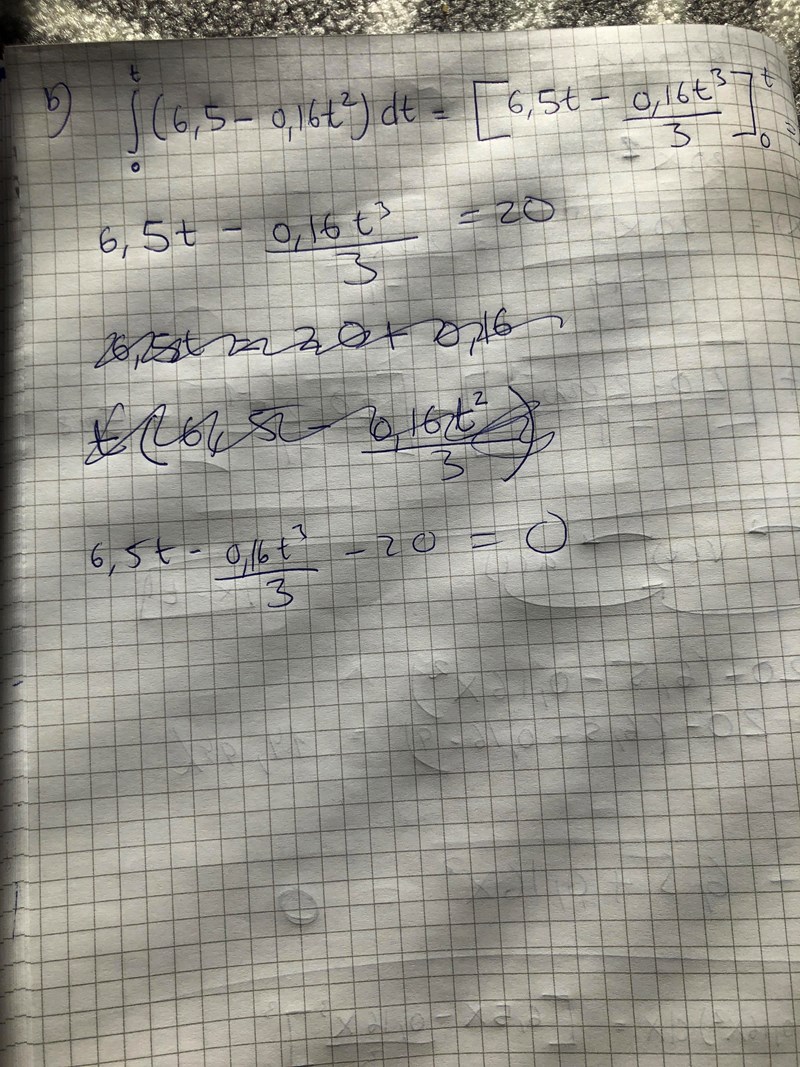 b) ∫₀ᵗ (6,5 - 0,16t²) dt = [6,5t - 0,16t³/3]₀ᵗ =
6,5t - 0,16t³/3 = 20
6,5t - 0,16t³/3 - 20 = 0